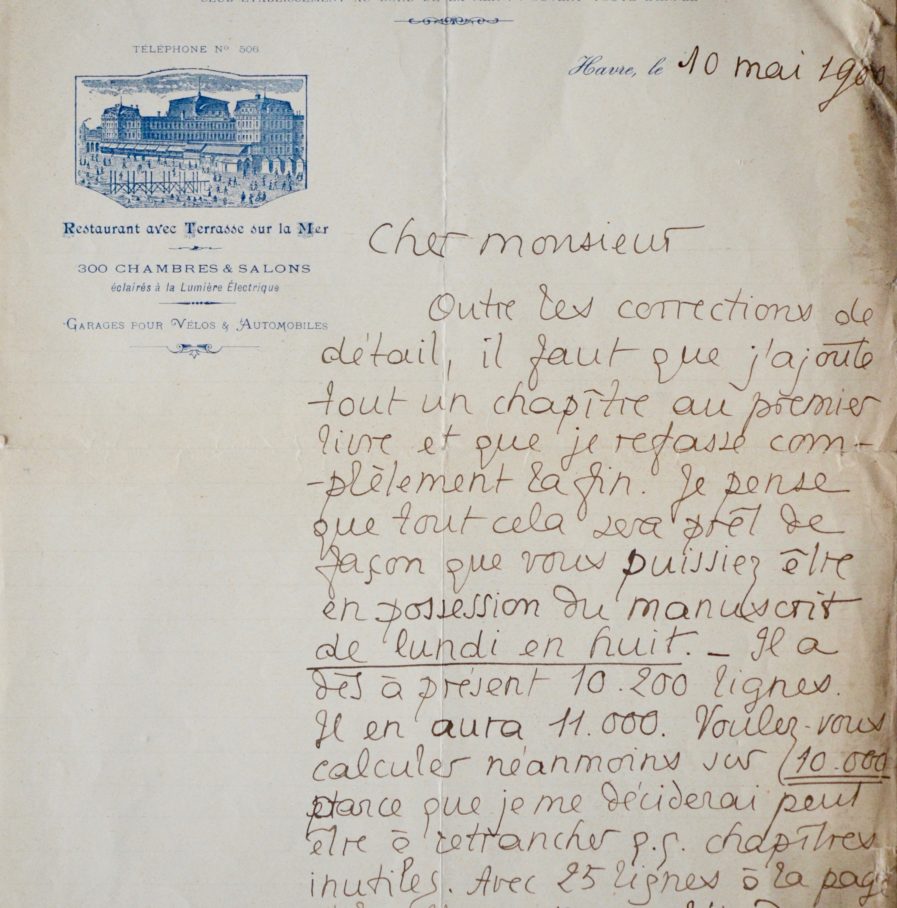 TÉLÉPHONE Nº 506
Havre, le 10 mai
Restaurant avec Terrasse sur la Mer
300 CHAMBRES & SALONS
éclairés à la Lumière Électrique
GARAGES POUR VÉLOS & AUTOMOBILES
Cher monsieur
Outre les corrections de
détail, il faut que j'ajoute
tout un chapître au premier
livre et que je refasse com-
-plètement la fin. Je pense
que tout cela sera prêt de
façon que vous puissiez être
en possession du manuscrit
de lundi en huit. _ Il a
dès à présent 10.200 lignes.
Il en aura 11.000. Voulez-vous
calculer néanmoins sur (10.000
parce que je me déciderai peut
être à retrancher q.q. chapîtres
inutiles. Avec 25 lignes à la page